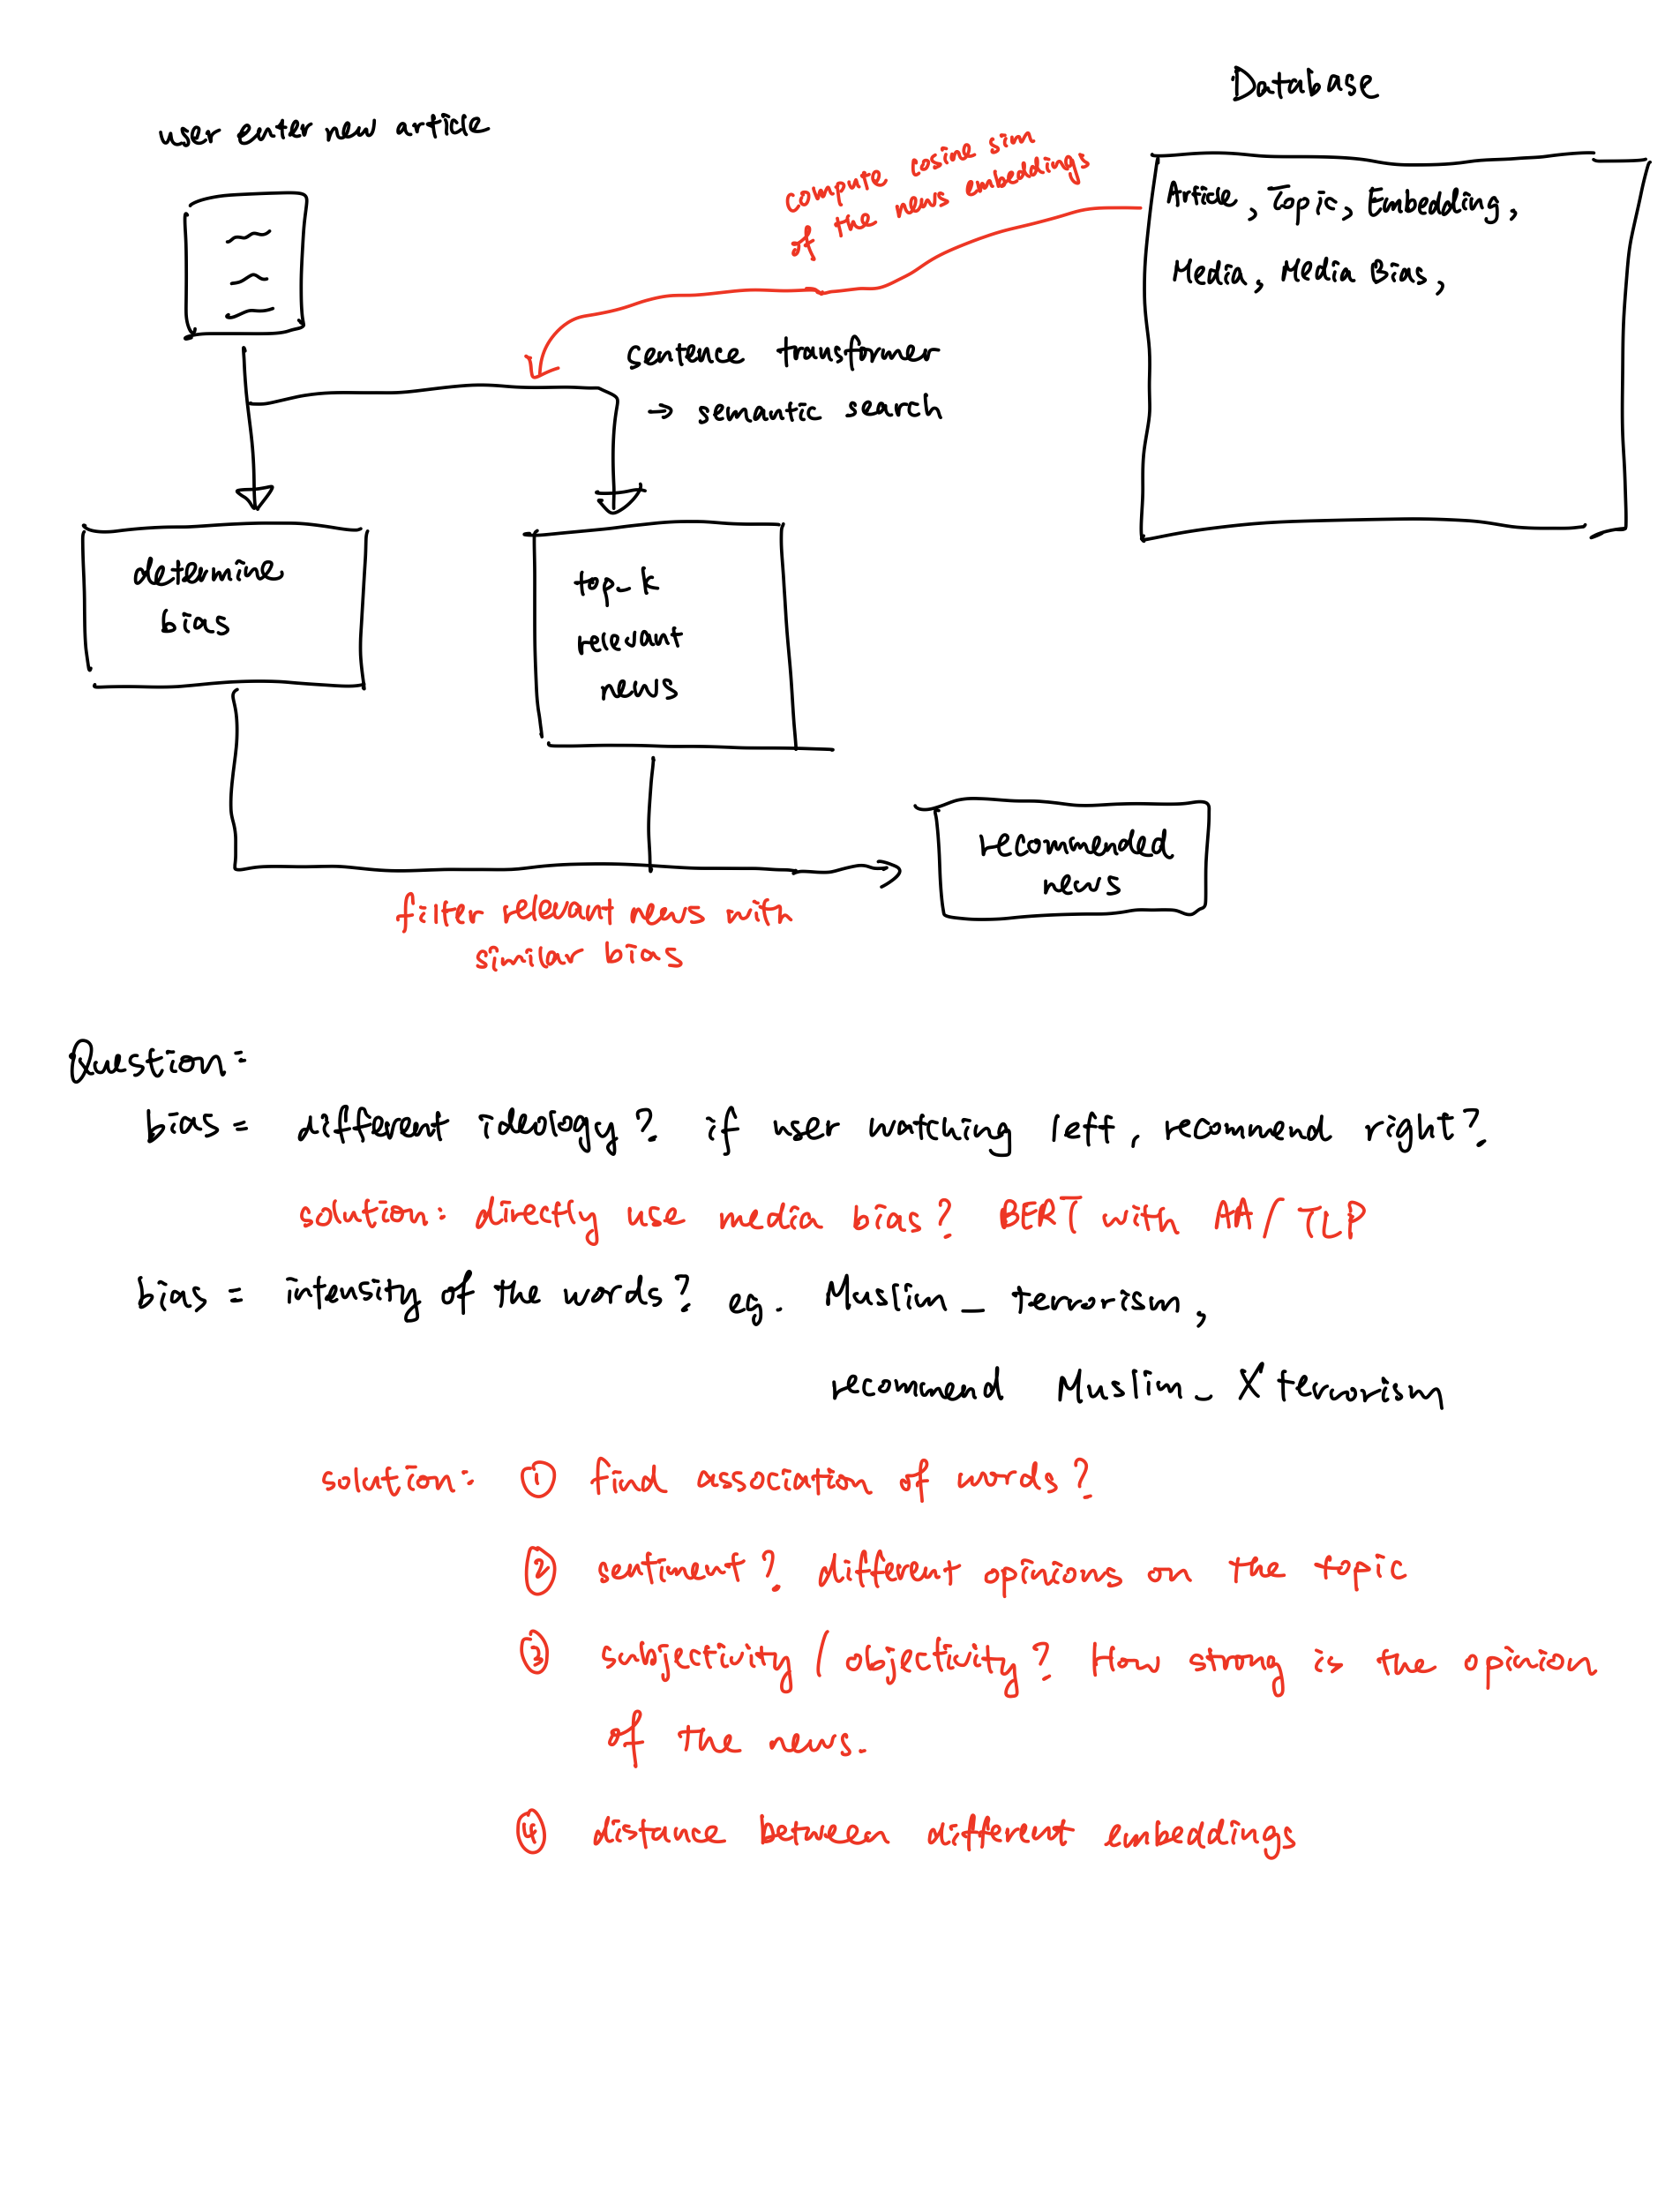 Database
user enter new article
compute cosine sim
of the news embeddings
Article, Topic, Embedding,
Media, Media Bias,
sentence transformer
→ semantic search
determine
bias
top_k
relevant
news
recommended
news
filter relevant news with
similar bias
Question:
bias = different ideology? if user watching left, recommend right?
solution: directly use media bias? BERT with AA/TLP
bias = intensity of the words? eg. Muslim_ terrorism,
recommend Muslim_ X terrorism
solution: ① find association of words?
② sentiment? different opinions on the topic
③ subjectivity / objectivity? How strong is the opinion
of the news.
④ distance between different embeddings